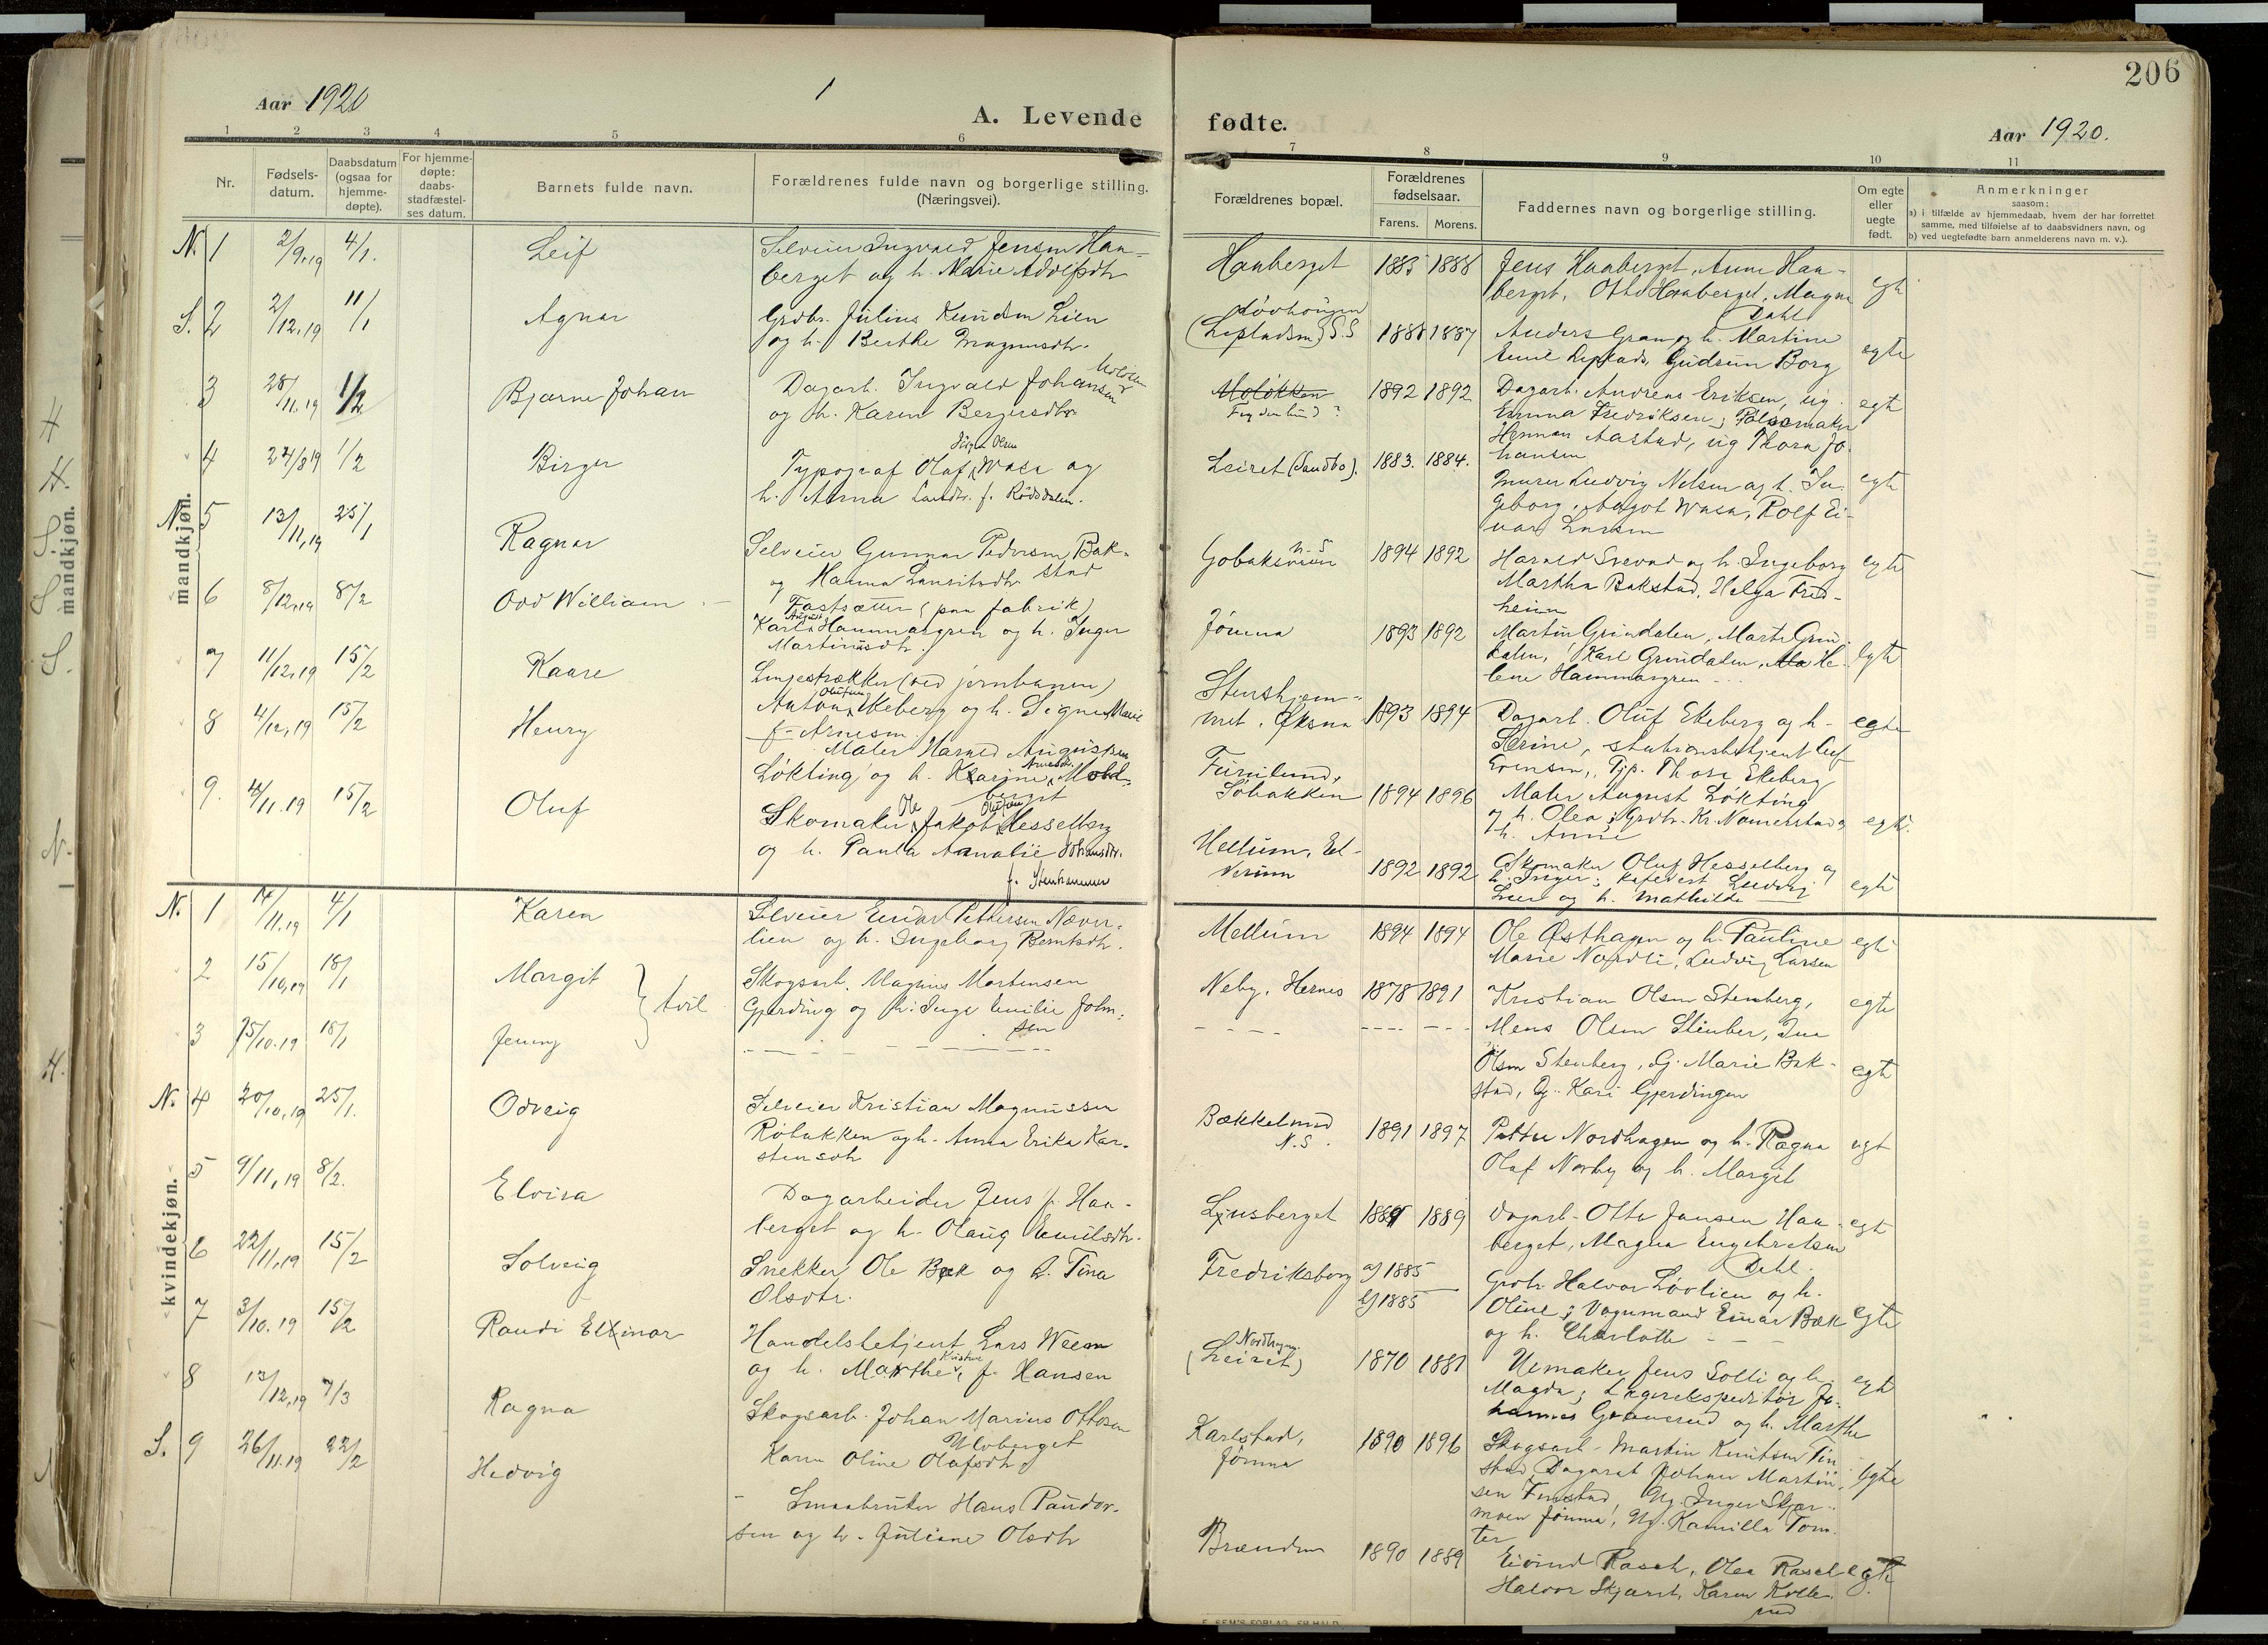 206
Aar 1920
1
A. Levende
fødte.
Aar 1920.
1 2 3 4 5 6
7 8 9 10 11
Nr.
Fødsels-
datum.
Daabsdatum
(ogsaa for
hjemme-
døpte).
For hjemme-
døpte:
daabs-
stadfæstel-
ses datum.
Barnets fulde navn.
Forældrenes fulde navn og borgerlige stilling.
(Næringsvei).
Forældrenes bopæl.
Forældrenes
fødselsaar.
Farens. Morens.
Faddernes navn og borgerlige stilling.
Om egte
eller
uegte
født.
Anmerkninger
saasom:
a) i tilfælde av hjemmedaab, hvem der har forrettet
samme, med tilføielse af to daabsvidners navn, og
b) ved uegtefødte barn anmelderens navn m. v.).
mandkjøn.
N. 1 2/9.19 4/1. Leif
Selveier Ingvald Jensen Haa-
berget og h. Marie Adolfsdtr
Haaberget 1885 1888
Jens Haaberget, Anne Haa-
berget, Otto Haaberget, Magna
Dahl
egt
S. 2 2/12.19 11/1 Agnar
Grdbr. Julius Knudsen Lien
og h. Berthe Magnusdtr.
Løvhaugen
(Lepladsen) S.S 1888 1887
Anders Gran og h. Martine
Emil Leplads, Gudrun Borg
egte
3 28/11.19 1/2 Bjarne Johan
Dagarb. Ingvald Johansen
og h. Karen Bergersdtr
Moløkken
1892 1892
Dagarb. Andreas Eriksen, ug.
Emma Fredriksen; Pølsemaker
Herman Aastad, ug Thora Jo-
hansen
egt
4 27/8 19 1/2 Birger
Typograf Olaf Wasa og
h. Anna Larsdtr. f. Rødsdalen.
Leiret (Sandbo). 1883. 1884.
Murer Ludvig Nelsen og h. In-
geborg, Aagot Wasa, Rolf Ei-
nar Larsen
egte
N. 5 13/11.19 25/1 Ragnar
Selveier Gunnar Pedersen Bak-
stad
og Hanna Lauritsdtr
Gobakveien N.S 1894 1892
Harald Svevad og h. Ingeborg
Martha Bakstad, Helga Fred-
heim
egte
6 8/12.19 8/2 Odd William
Fastsætter (paa fabrik)
Karl August Hammargren og h. Inger
Martinusdtr.
Jømna 1893 1892
Martin Grindalen, Marte Grin-
dalen, Karl Grindalen, He-
lene Hammargren
egte
7 11/12.19 15/2 Kaare
Linjestrækker (ved jernbanen)
Anton Olufsen Ekeberg og h. Signe Marie
f. Arnesen
Stenshjem-
met, Øksna 1893 1894
Dagarb. Oluf Ekeberg og h.
Serine, stationsbetjent Leif
Evensen, Pjp. Thora Ekeberg
egte
8 4/12.19 15/2 Henry
Maler Harald Augustsen
Løkting og h. Karine Arnesdtr. Mold-
berget
Furulund,
Søbakken 1894 1896
Maler August Løkting
og h. Olea; Grdbr. Kr. Nomerstad og
h. Anne
egte.
9. 4/11.19 15/2 Oluf
Skomaker Ole Jakob Olufsen Hesselberg
og h. Paula Amalie Johansdtr.
f. Stenhammer
Hellum, El-
verum 1892 1892
Skomaker Oluf Hesselberg og
h. Inger; kafévert Ludvig
Lier og h. Mathilde
egte
kvindekjøn.
N. 1 14/11.19 4/1 Karen
Selveier Einar Pettersen Næver-
lien og h. Ingeborg Berntsdtr.
Mellum 1894 1894
Ole Østhagen og h. Pauline
Marie Nordli, Ludvig Larsen
egte
2 15/10.19 18/1 Margit
tvil.
Skogsarb. Magnus Mortensen
Gjerding og h. Inga Emilie John-
sen
Neby, Hernes 1878 1891
Kristian Olsen Stenberg,
Mens Olsen Stenber, Ina
egte
3 15/10.19 18/1 Jenny
Olsen Stenberg, Gj. Marie Bak-
stad, Gj. Kari Gjerdingen
egt
N. 4 20/10.19 25/1. Odveig
Selveier Kristian Magnussen
Røbakken og h. Anna Erika Kar-
stensdtr
Bækkelund
N.S. 1891 1897
Petter Nordhagen og h. Ragna
Olaf Norby og h. Margit
egt
5 9/11.19 8/2. Elvira
Dagarbeider Jens J. Haa-
berget og h. Olaug Emilsdtr.
Ljusberget 1889
Dagarb. Otto Jensen Haa-
berget, Magna Engebretsen
Dahl.
egt
6 22/11.19 15/2 Solveig
Snekker Ole Bæk og h. Tina
Olsdtr.
Fredriksborg a) 1885
b) 1885
Grdbr. Halvor Løvlien og h.
Oline; Vognmand Einar Bæk
og h. Charlotte
egte
7 3/10.19 15/2 Randi Ellinor
Handelsbetjent Lars Weem
og h. Marthe Kristine f. Hansen
Nordhagen
(Leiret) 1870 1881
Urmaker Jens Solli og h.
Magda; Lagerekspeditør Jo-
hannes Granerud og h. Marthe
egt
8 13/12.19 7/3 Ragna
Skogsarb. Johan Marius Ottosen
Uloberget
Karen Oline Olafsdtr
Karlstad,
Jømna 1890 1896
Skogsarb. Martin Knutsen Fin-
stad, Dagarb. Johan Martin-
sen Finstad, Ug. Inger Skjær-
moen Jømna, Ug. Kamilla Tom-
ter
egte
S. 9 26/11.19 22/2 Hedvig
Smaabruker Hans Paudor-
sen og h. Juliane Olsdtr
Brænden 1890 1889
Eivind Rasch, Olea Rasch
Halvor Skjaret, Karen Kolle-
rud
egte